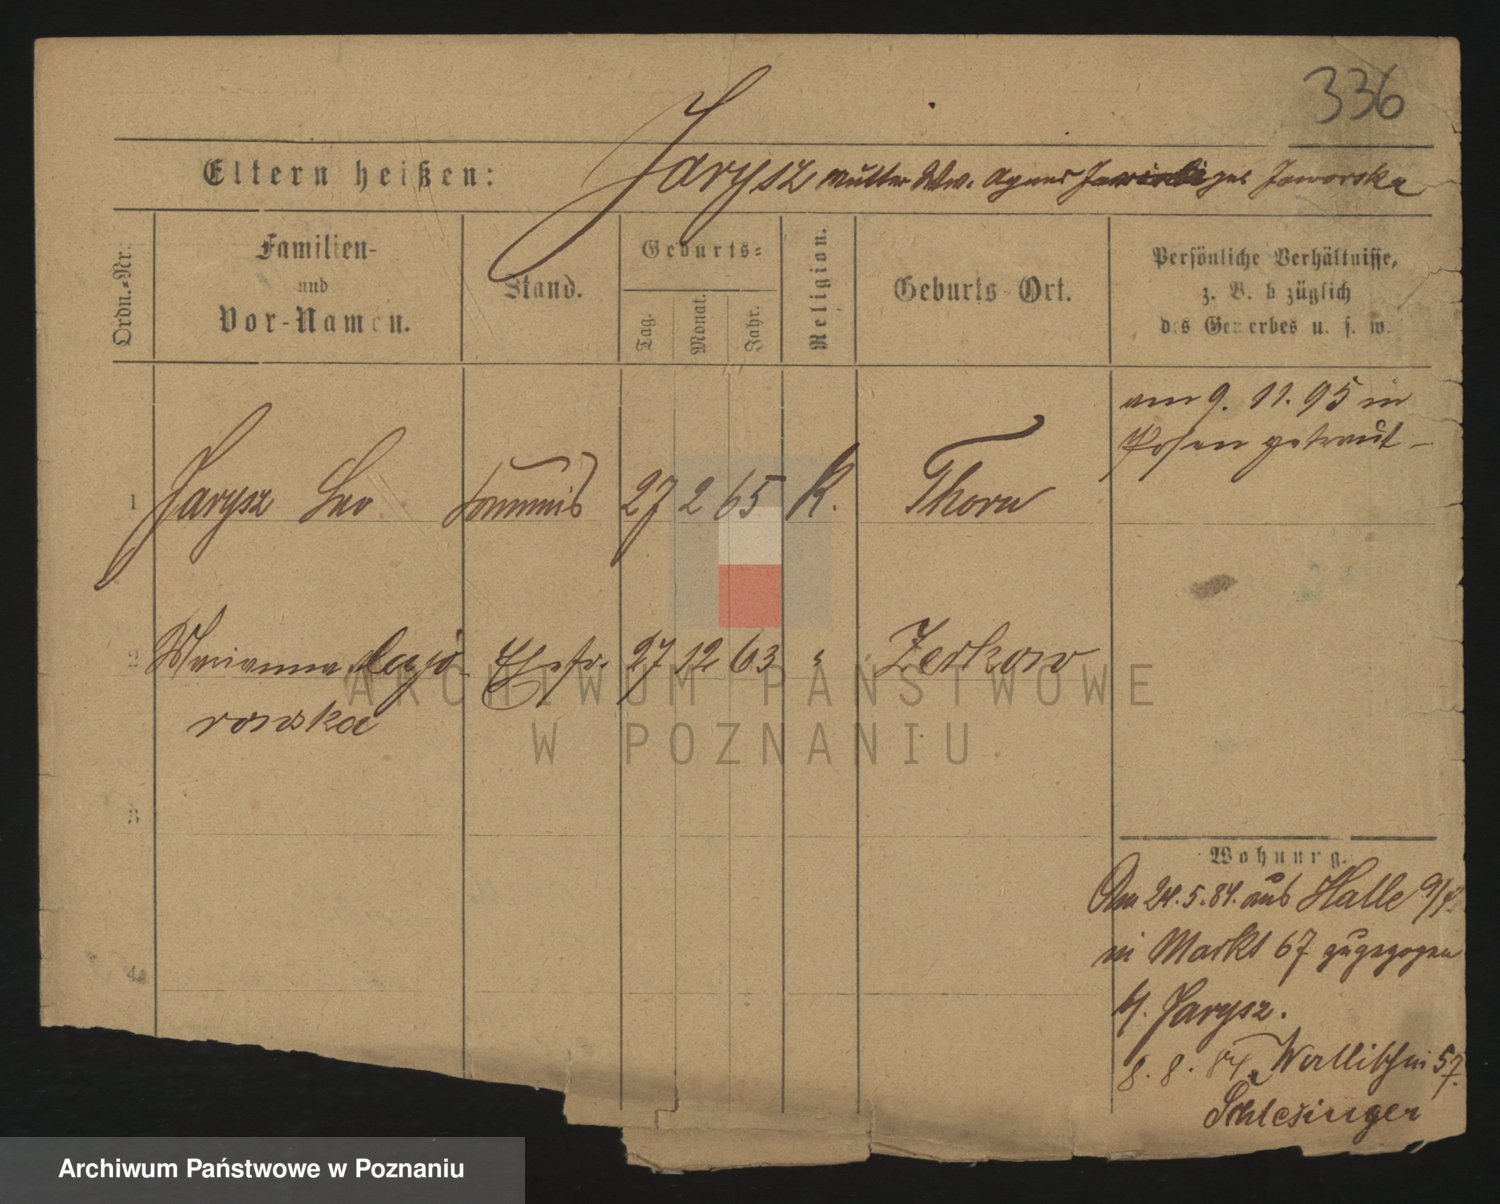 336
Eltern heißen: Jarysz Mutter Ww. Agnes geb Jaworska
Ordn.-Nr.
Familien-
und
Vor-Namen.
Stand.
Geburts-
Tag.
Monat.
Jahr.
Religion.
Geburts Ort.
Persönliche Verhältnisse,
z. B. b züglich
des Gewerbes u. s. w.
am 9. 11. 95 in
Posen getraut -
1 Jarysz Leo Commis 27 2 65 K. Thorn
2 Marianna Ehefr. 27 12 63 " Zerkow
rowska
3
4
Wohnung.
Am 24. 5. 84. aus Halle a/S.
in Markt 67 zugezogen
b/. Jarysz.
8. 8. 84. Wallischei 57.
Schlesinger
ARCHIWUM PAŃSTWOWE
W POZNANIU
Archiwum Państwowe w Poznaniu